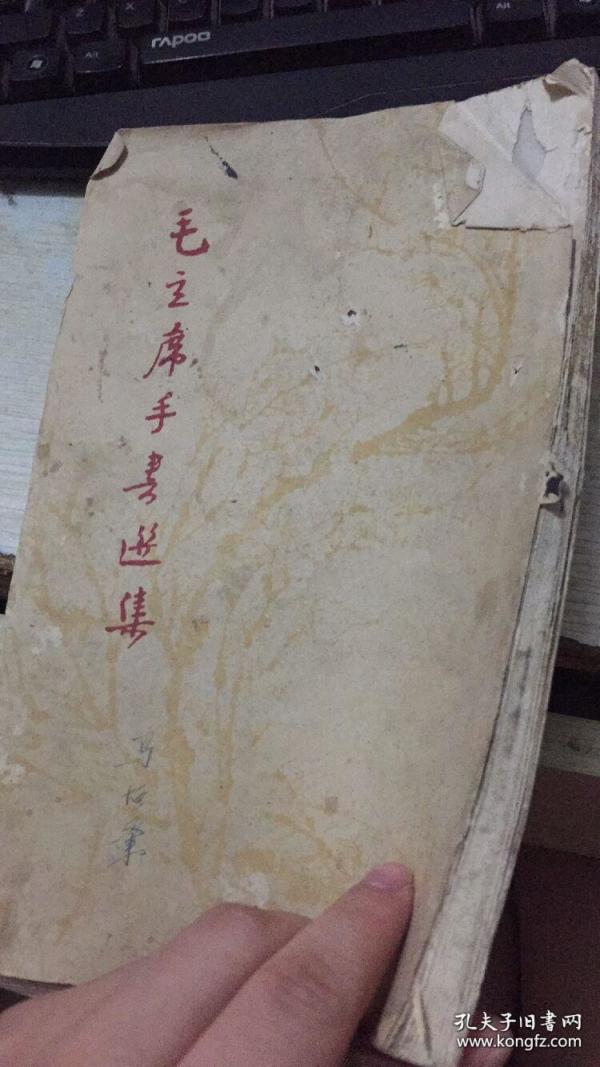 rapoo
Alt
Alt
毛主席手书选集
孔夫子旧书网
www.kongfz.com